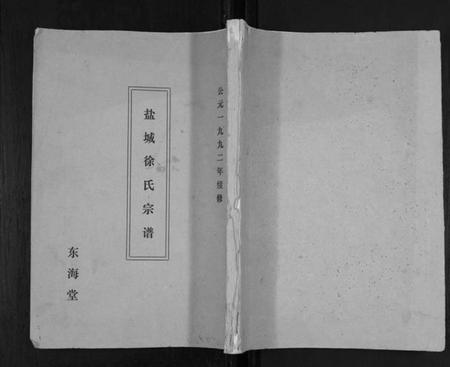 公元一九九二年续修
盐城徐氏宗谱
东海堂